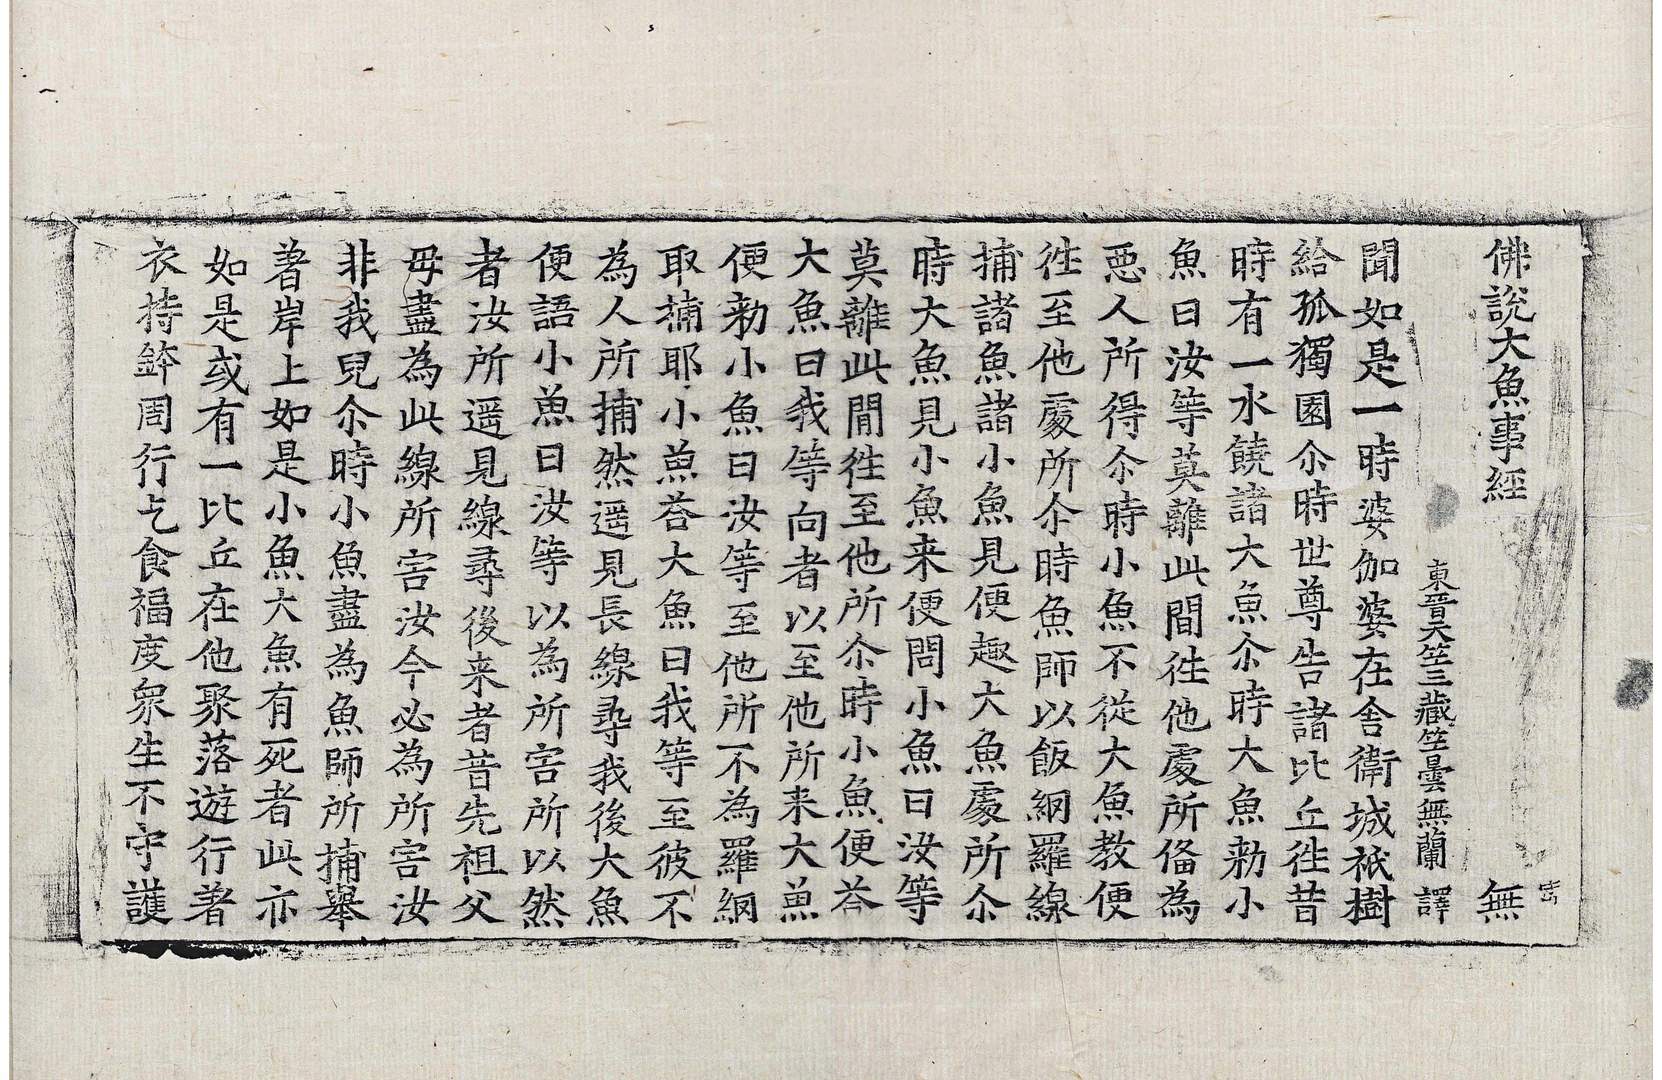 佛說大魚事經 無
東晋天竺三藏竺曇無蘭 譯
聞如是一時婆伽婆在舍衛城祇樹
給孤獨園尒時世尊告諸比丘徃昔
時有一水饒諸大魚尒時大魚勑小
魚曰汝等莫離此間徃他處所俻為
惡人所得尒時小魚不從大魚教便
徃至他處所尒時魚師以飯網羅線
捕諸魚諸小魚見便趣大魚處所尒
時大魚見小魚来便問小魚曰汝等
莫離此間徃至他所尒時小魚便荅
大魚曰我等向者以至他所来大魚
便勑小魚曰汝等至他所不為羅網
取捕耶小魚荅大魚曰我等至彼不
為人所捕然遥見長線尋我後大魚
便語小魚曰汝等以為所害所以然
者汝所遥見線尋後来者昔先祖父
母盡為此線所害汝今必為所害汝
非我兒尒時小魚盡為魚師所捕舉
著岸上如是小魚大魚有死者此亦
如是或有一比丘在他聚落遊行著
衣持鉢周行乞食福度衆生不守護